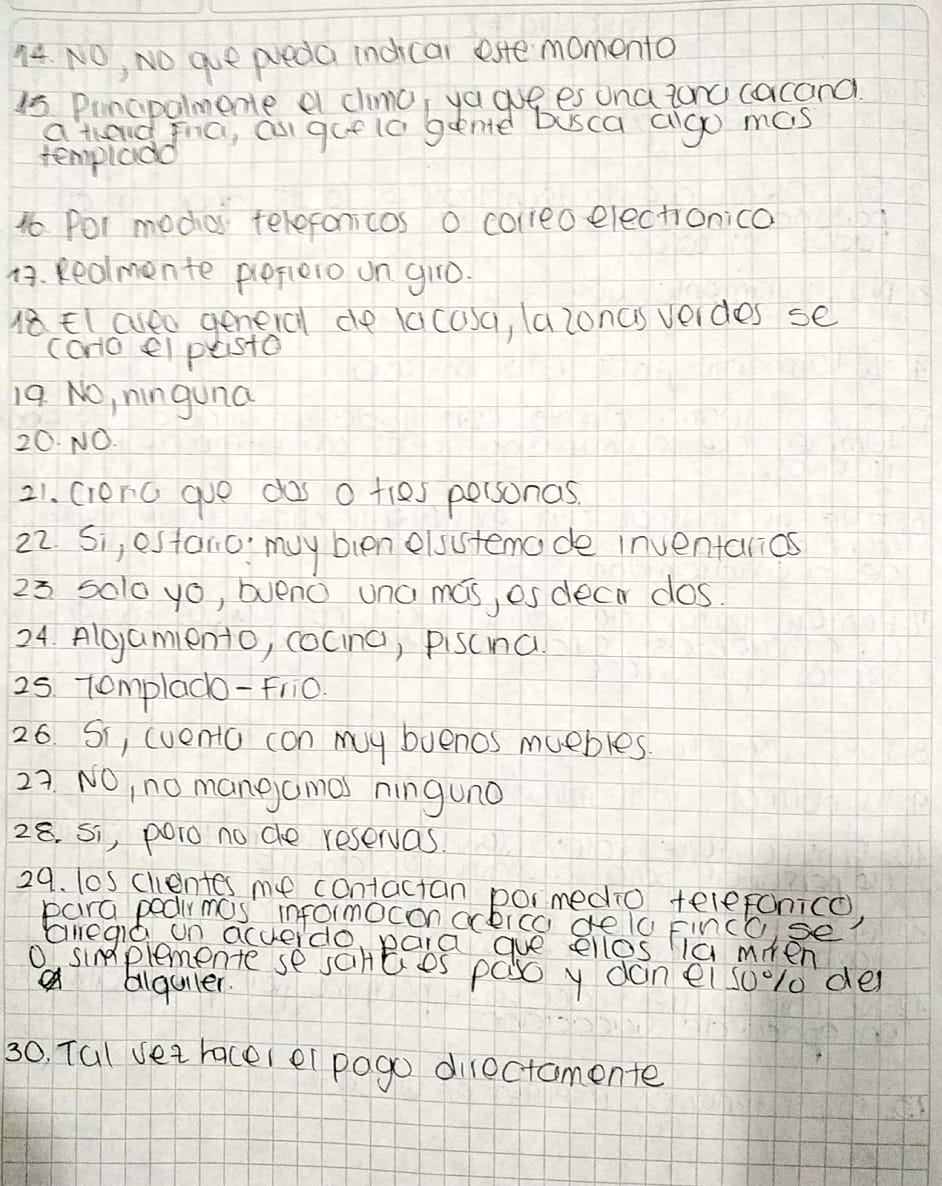 14. NO, NO que pueda indicar este momento
15 Principalmente el clima, ya que es una zona cacana
a tierra Fria, asi que la gente busca algo mas
templado
16 Por medios telefonicos o correo electronico
17. Realmente prefiero un giro.
18 El aseo general de la casa, la zonas verdes se
corta el pasto
19. No, ninguna
20. NO.
21. creria que dos o tres personas.
22. Si, estaria muy bien el sistema de inventarios
23 solo yo, bueno una mas, es decir dos.
24. Alojamiento, cocina, piscina.
25. Templado-Frio.
26. Si, cuenta con muy buenos muebles.
27. NO, no manejamos ninguno
28. Si, pero no de reservas.
29. los clientes me contactan por medio telefonico,
para pedir mas informacon de la Finca, se
arregla un acuerdo, para que ellos la miren
o simplemente se salta es paso y dan el 50% del
alquiler.
30. Tal vez hacer el pago directamente